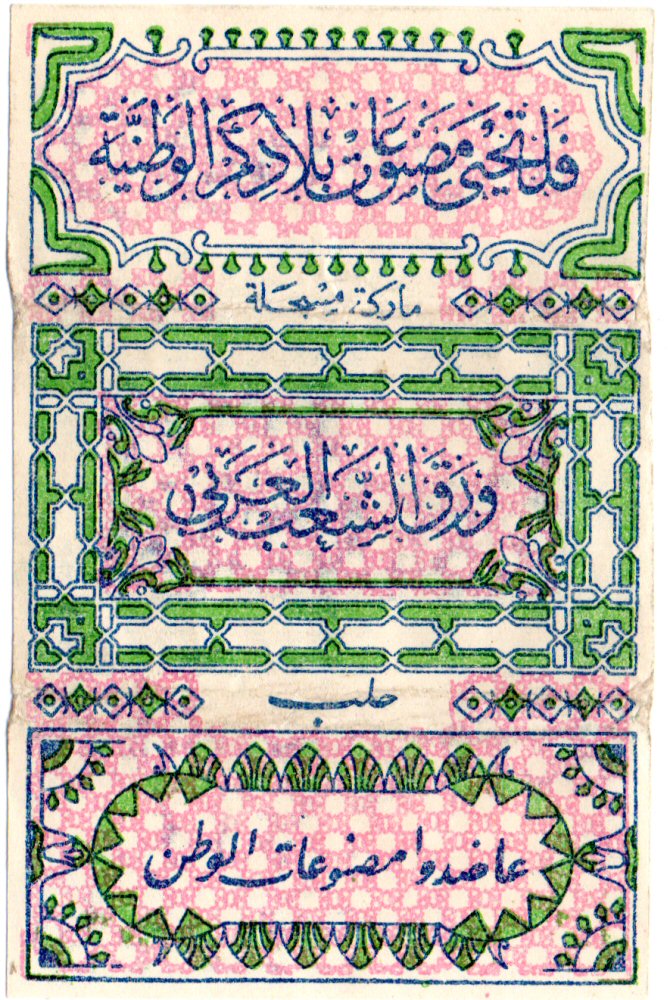 فلتحيى مصنوعات بلادكم الوطنيّة
ماركة مسجلة
ورق الشّعب العربي
حلب
عاضدوا مصنوعات الوطن